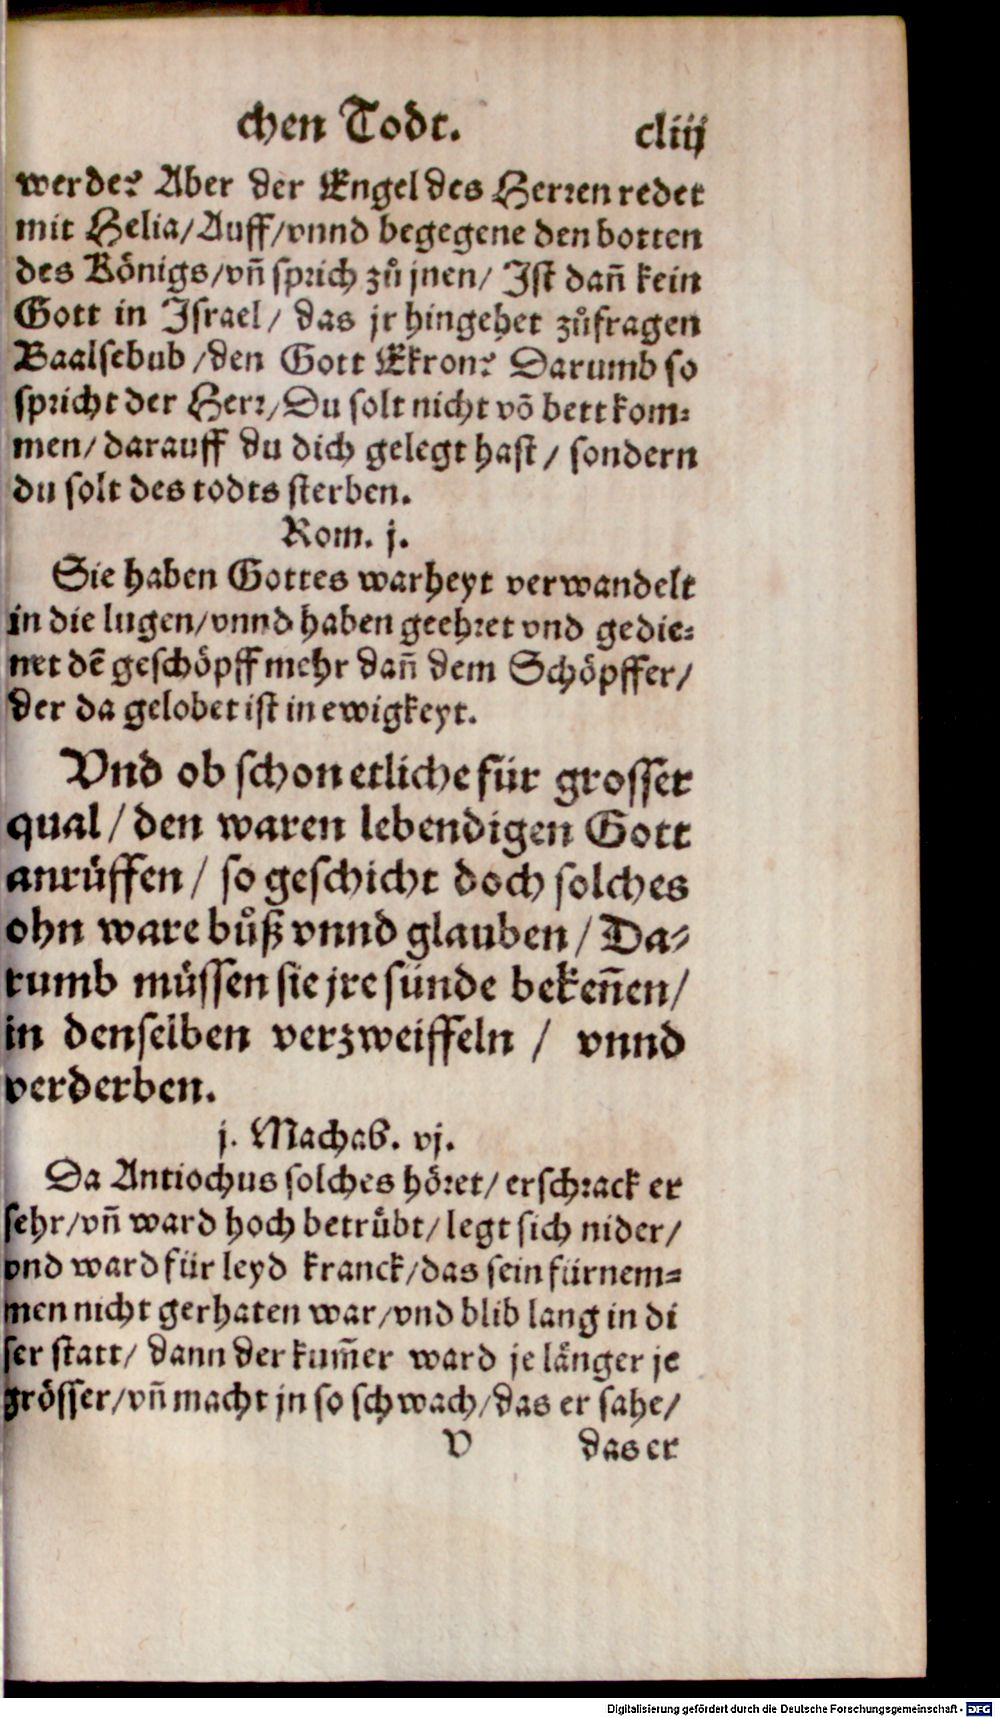 chen Todt. cliij
werde? Aber der Engel des Herren redet
mit Helia/ Auff/ vnnd begegene den botten
des Königs/ vñ sprich zů jnen/ Ist dañ kein
Gott in Israel/ das jr hingehet zůfragen
Baalsebub/ den Gott Ekron? Darumb so
spricht der Herr/ Du solt nicht võ bett kom-
men/ darauff du dich gelegt hast/ sondern
du solt des todts sterben.
Rom. j.
Sie haben Gottes warheyt verwandelt
in die lugen/ vnnd haben geehret vnd gedie-
net dẽ geschöpff mehr dañ dem Schöpffer/
der da gelobet ist in ewigkeyt.
Vnd ob schon etliche für grosser
qual/ den waren lebendigen Gott
anrüffen/ so geschicht doch solches
ohn ware bůß vnnd glauben/ Da-
rumb müssen sie jre sünde bekeñen/
in denselben verzweiffeln/ vnnd
verderben.
j. Machab. vj.
Da Antiochus solches höret/ erschrack er
sehr/ vñ ward hoch betrübt/ legt sich nider/
vnd ward für leyd kranck/ das sein fürnem-
men nicht gerhaten war/ vnd blib lang in di
ser statt/ dann der kum̃er ward je länger je
grösser/ vñ macht jn so schwach/ das er sahe/
V das er
Digitalisierung gefördert durch die Deutsche Forschungsgemeinschaft - DFG